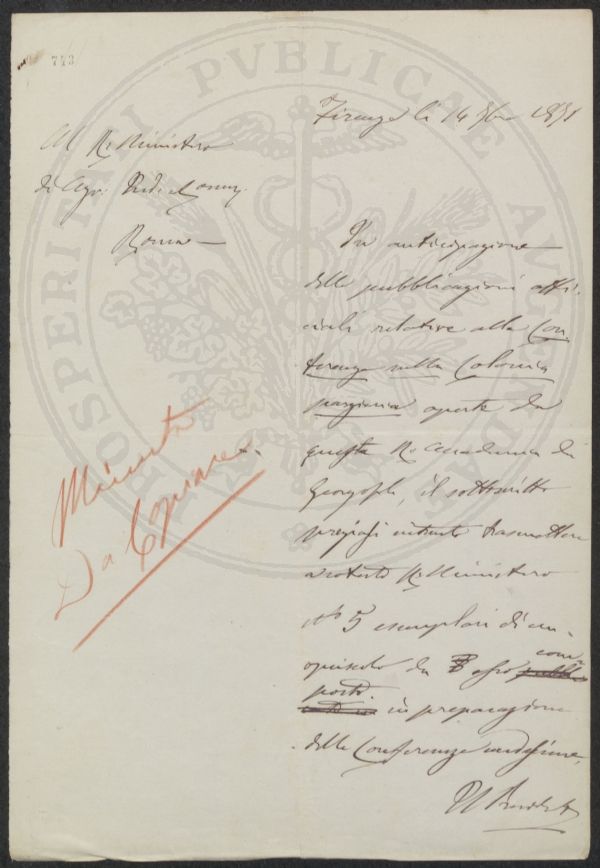 743
PROSPERITATI PVBLICAE AVGENDAE
Firenze li 14 9bre 1891
Al R. Ministero
di Agr. Ind. e Comm.
Roma
In anticipazione
delle pubblicazioni offi-
ciali relative alla Con
ferenza sulla Colonia
parziaria aperte da
questa R. Accademia dei
Georgofili, il sottoscritto
pregiasi intanto trasmettere
a codesto R. Ministero
No 5 esemplari di un
opuscolo da esso com-
posto in preparazione
delle Conferenze medesime.
Il Presidente
Minuta
Da Copiare